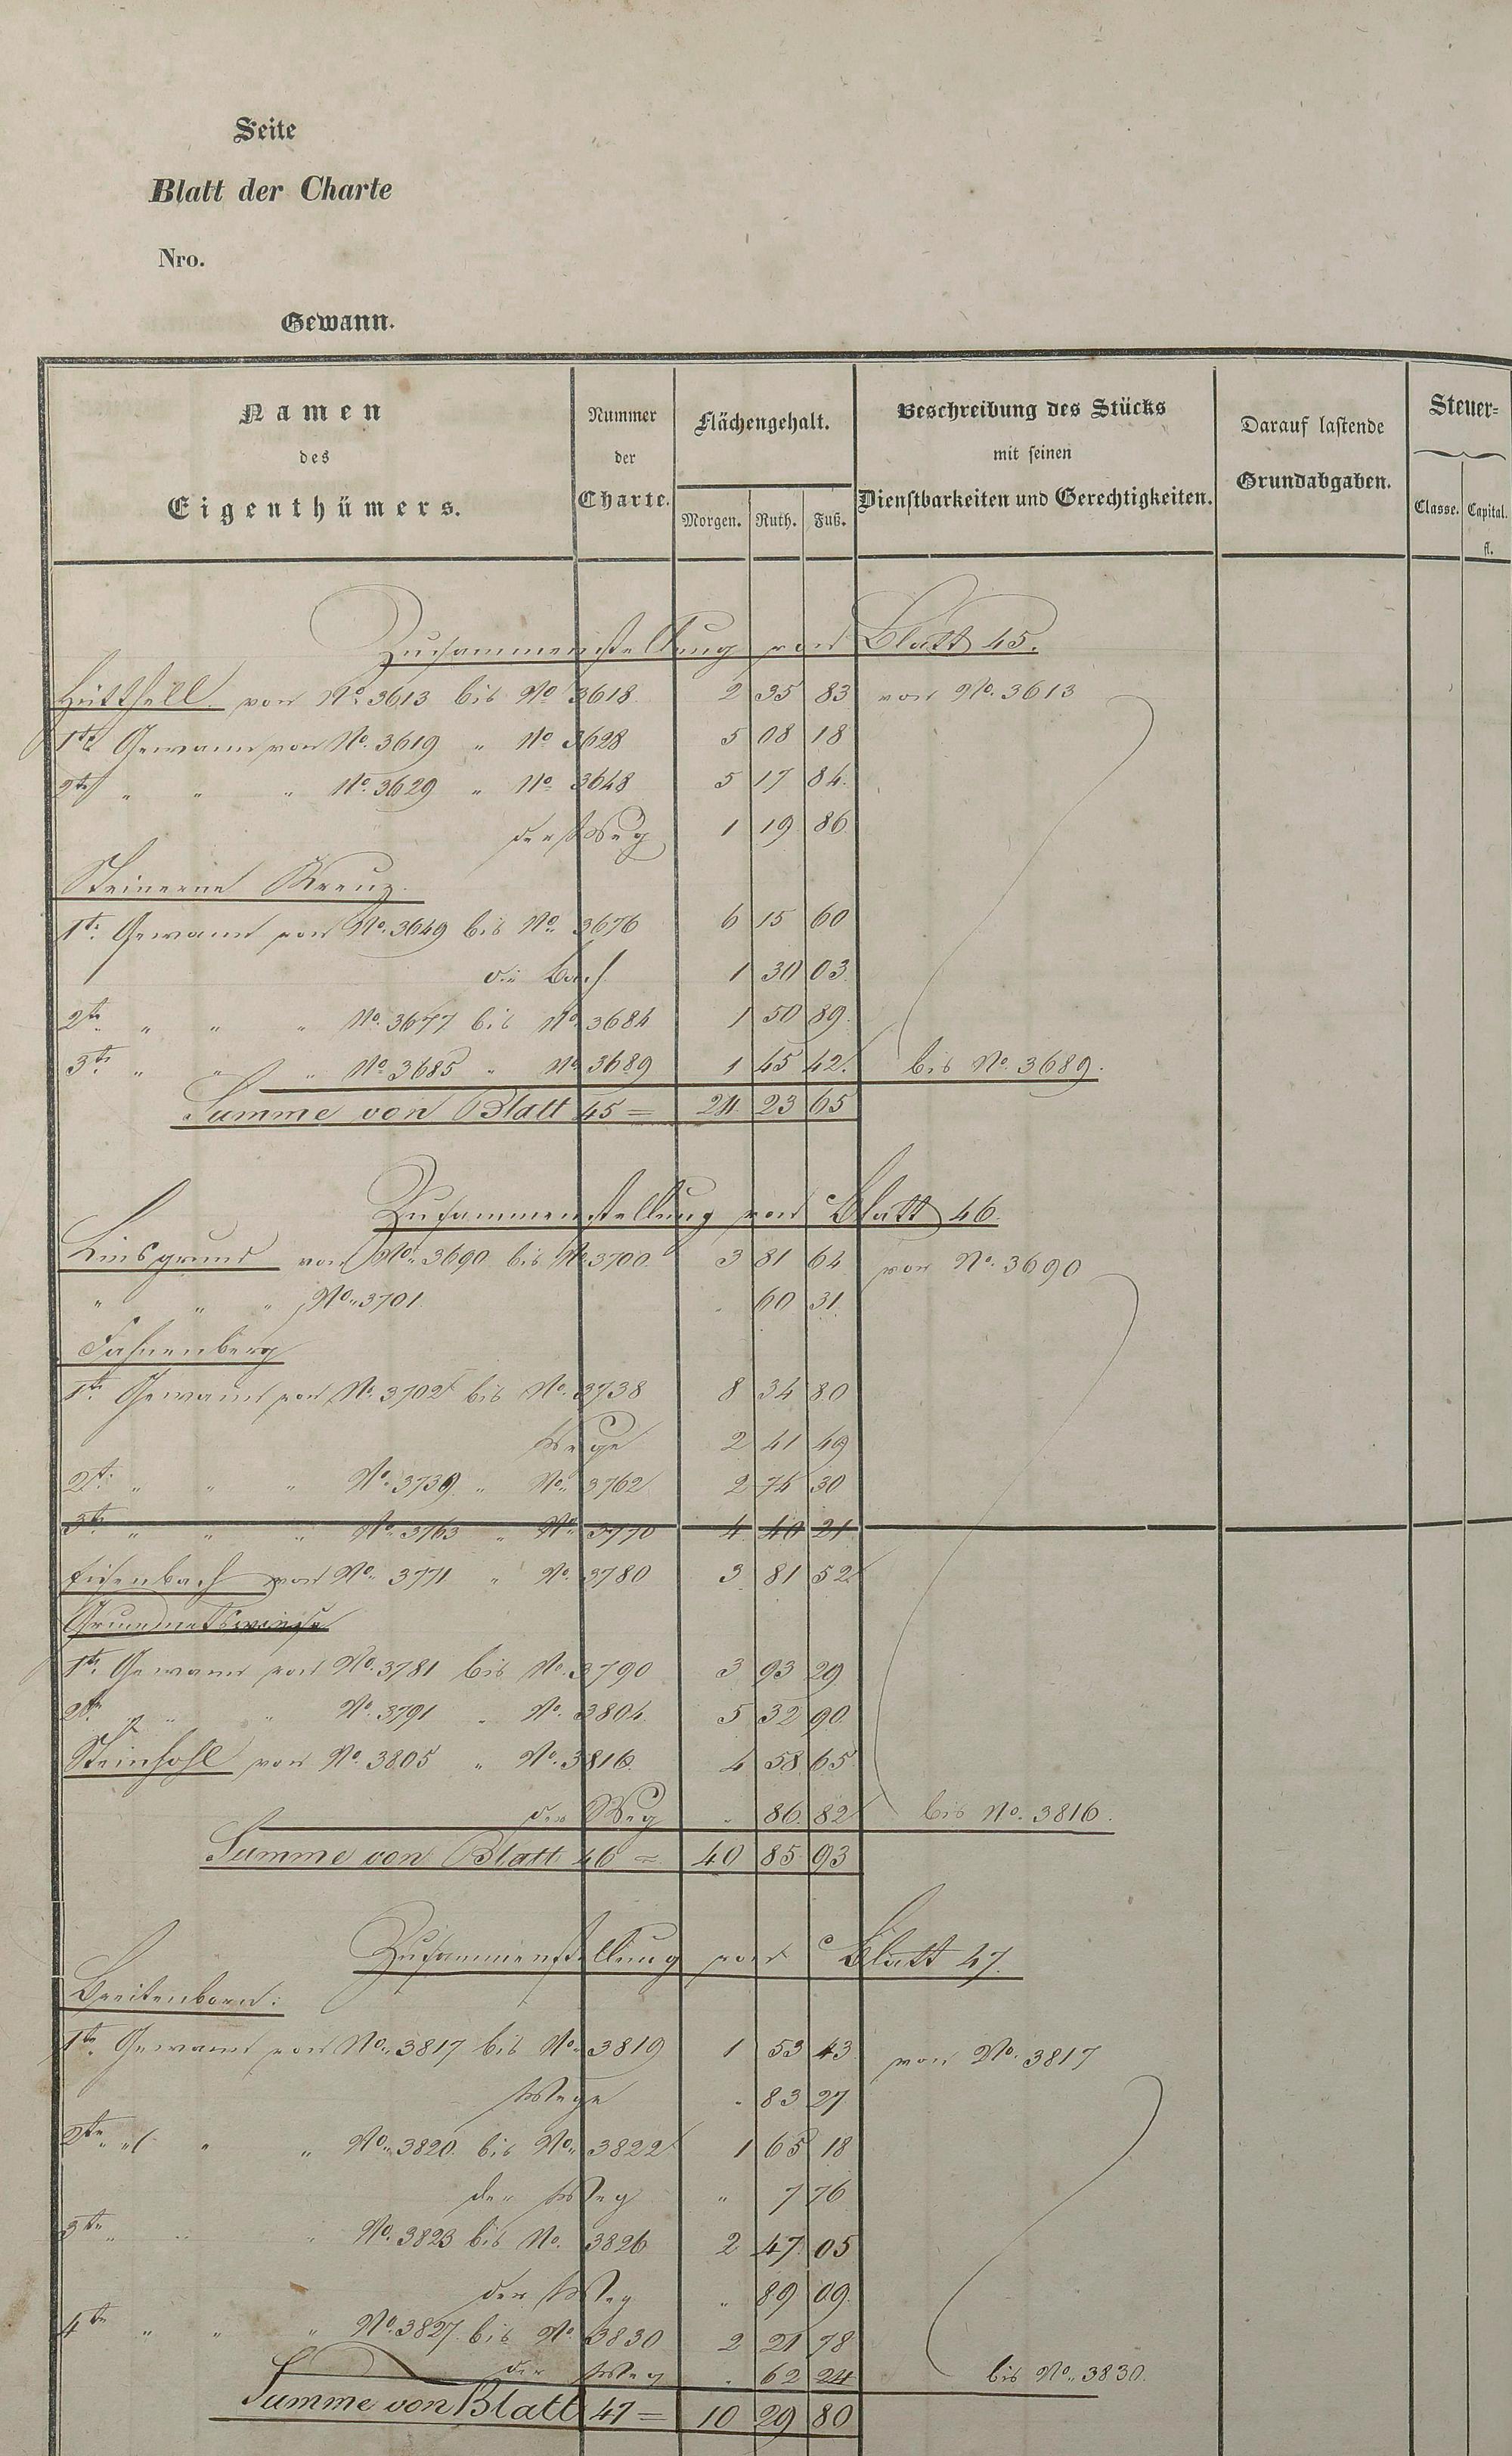 Seite
Blatt der Charte
Nro.
Gewann.
Namen
des
Eigenthümers.
Nummer
der
Charte.
Flächengehalt.
Morgen. Ruth. Fuß.
Beschreibung des Stücks
mit seinen
Dienstbarkeiten und Gerechtigkeiten.
Darauf lastende
Grundabgaben.
Steuer=
Classe. Capital.
fl.
Zusammenstellung von Blatt 45.
von No. 3613 bis No 3618. 2 35 83 von No. 3613
1te Gewann von No. 3619 " No 3628 5 08 18
2te " " " No. 3629 " No. 3648 5 17 84.
der Weg 1 19 86
Steinerne Kreuz.
1te Gewann von No. 3649 bis No. 3676 6 15 60
die Bach 1 30 03.
2te " " " No. 3677 bis No. 3684 1 50 89.
3te " " " No. 3685 " No 3689 1 45 42. bis No. 3689.
Summe von Blatt 45 = 24. 23 65
Zusammenstellung von Blatt 46.
Linsgrund von No. 3690 bis No. 3700. 3 81 64 von No. 3690
" " " No. 3701. . 60 31.
Fahnenberg
1te Gewann von No. 3702 bis No. 3738 8 34 80
Wege 2 41 49
2te " " " No. 3739. " No. 3762 2 74 30
3te " " " No. 3763 " No. 3770 4 40 21
Eisenbach von No. 3771 " No. 3780 3 81 52
Grummetswiese
1te Gewann von No. 3781 bis No. 3790 3 93 29
2te " " " No. 3791 " No. 3804. 5 32 90.
Steinhohl von No. 3805 " No. 3816. 4 58 65
der Weg " 86 82 bis No. 3816.
Summe von Blatt 46 = 40 85 93
Zusammenstellung von Blatt 47.
Breitenborn:
1te Gewann von No. 3817 bis No. 3819 1 53 43 von No. 3817
Wege . 83 27
2te " " " No. 3820. bis No. 3822 1 65 18
der Weg " 7 76
3te " " " No. 3823 bis No. 3826 2 47 05
der Weg " 89 09.
4te " " " No. 3827. bis No. 3830 2 21 78
der Weg . 62 24 bis No. 3830.
Summe von Blatt 47 = 10 29 80